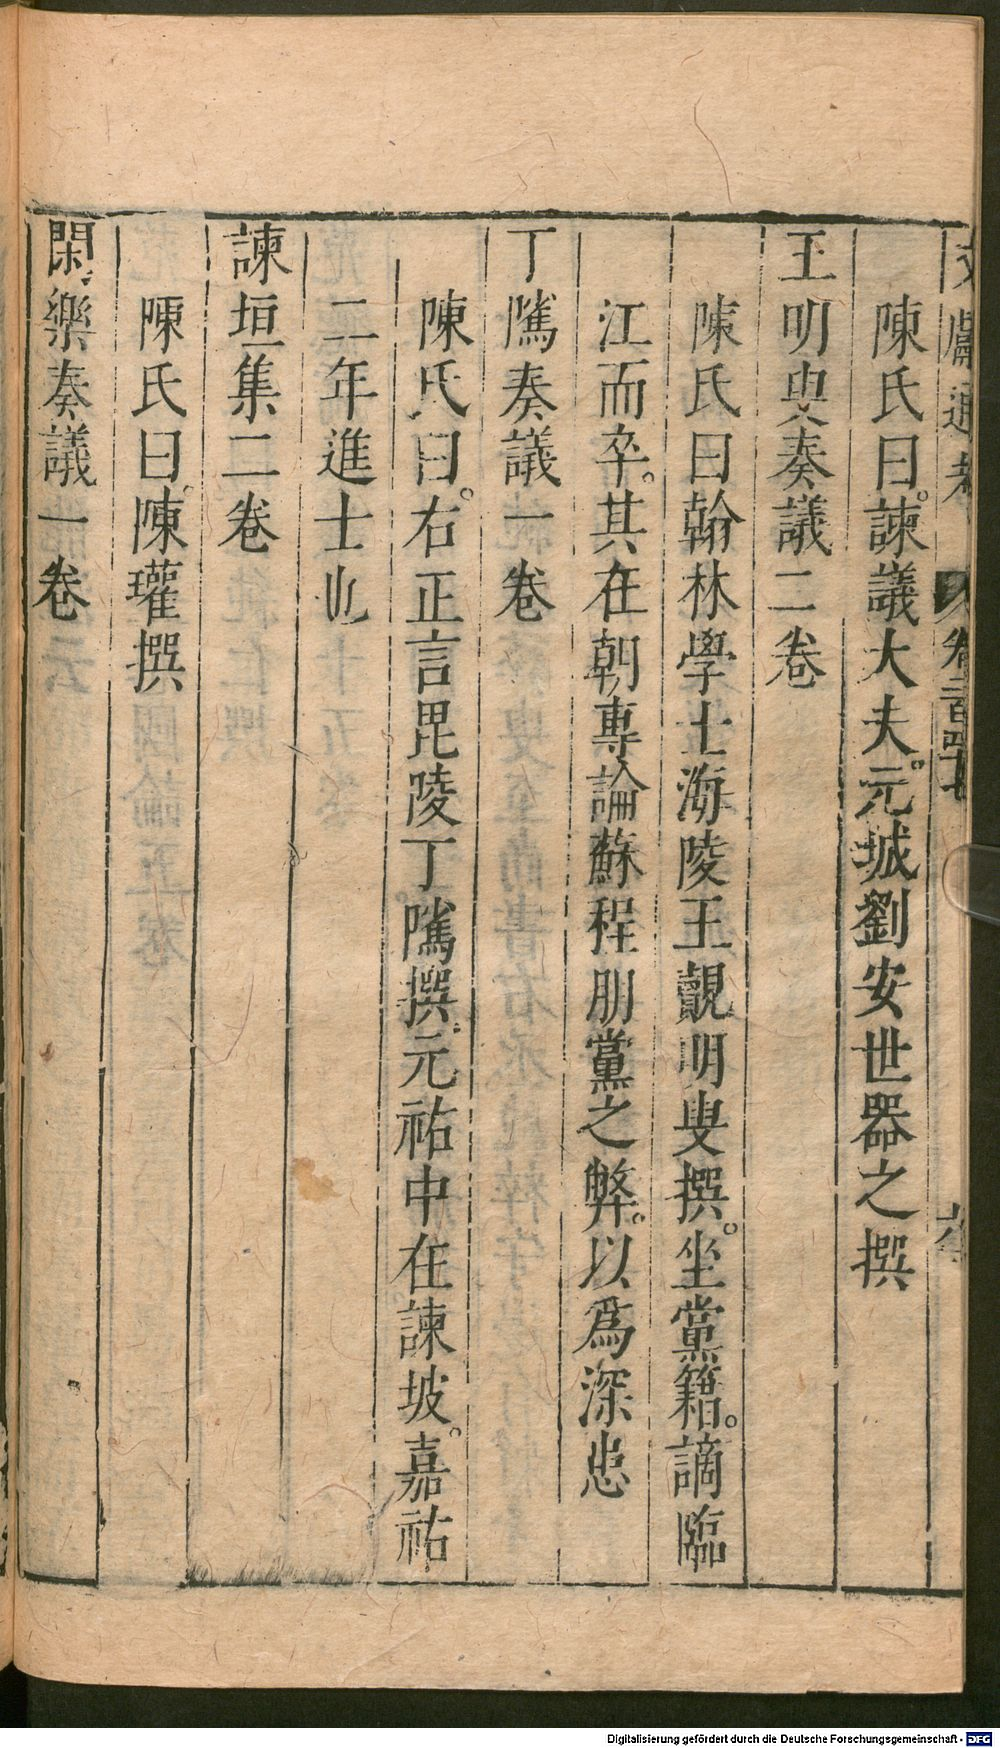 文獻通考 卷二百四十七
陳氏曰諫議大夫元城劉安世器之撰
王明叟奏議二卷
陳氏曰翰林學士海陵王觀明叟撰坐黨籍謫臨
江而卒其在朝專論蘇程朋黨之弊以為深患
丁隲奏議一卷
陳氏曰右正言毘陵丁隲撰元祐中在諫坡嘉祐
二年進士也
諫垣集二卷
陳氏曰陳瓘撰
閑樂奏議一卷
Digitalisierung gefördert durch die Deutsche Forschungsgemeinschaft - DFG